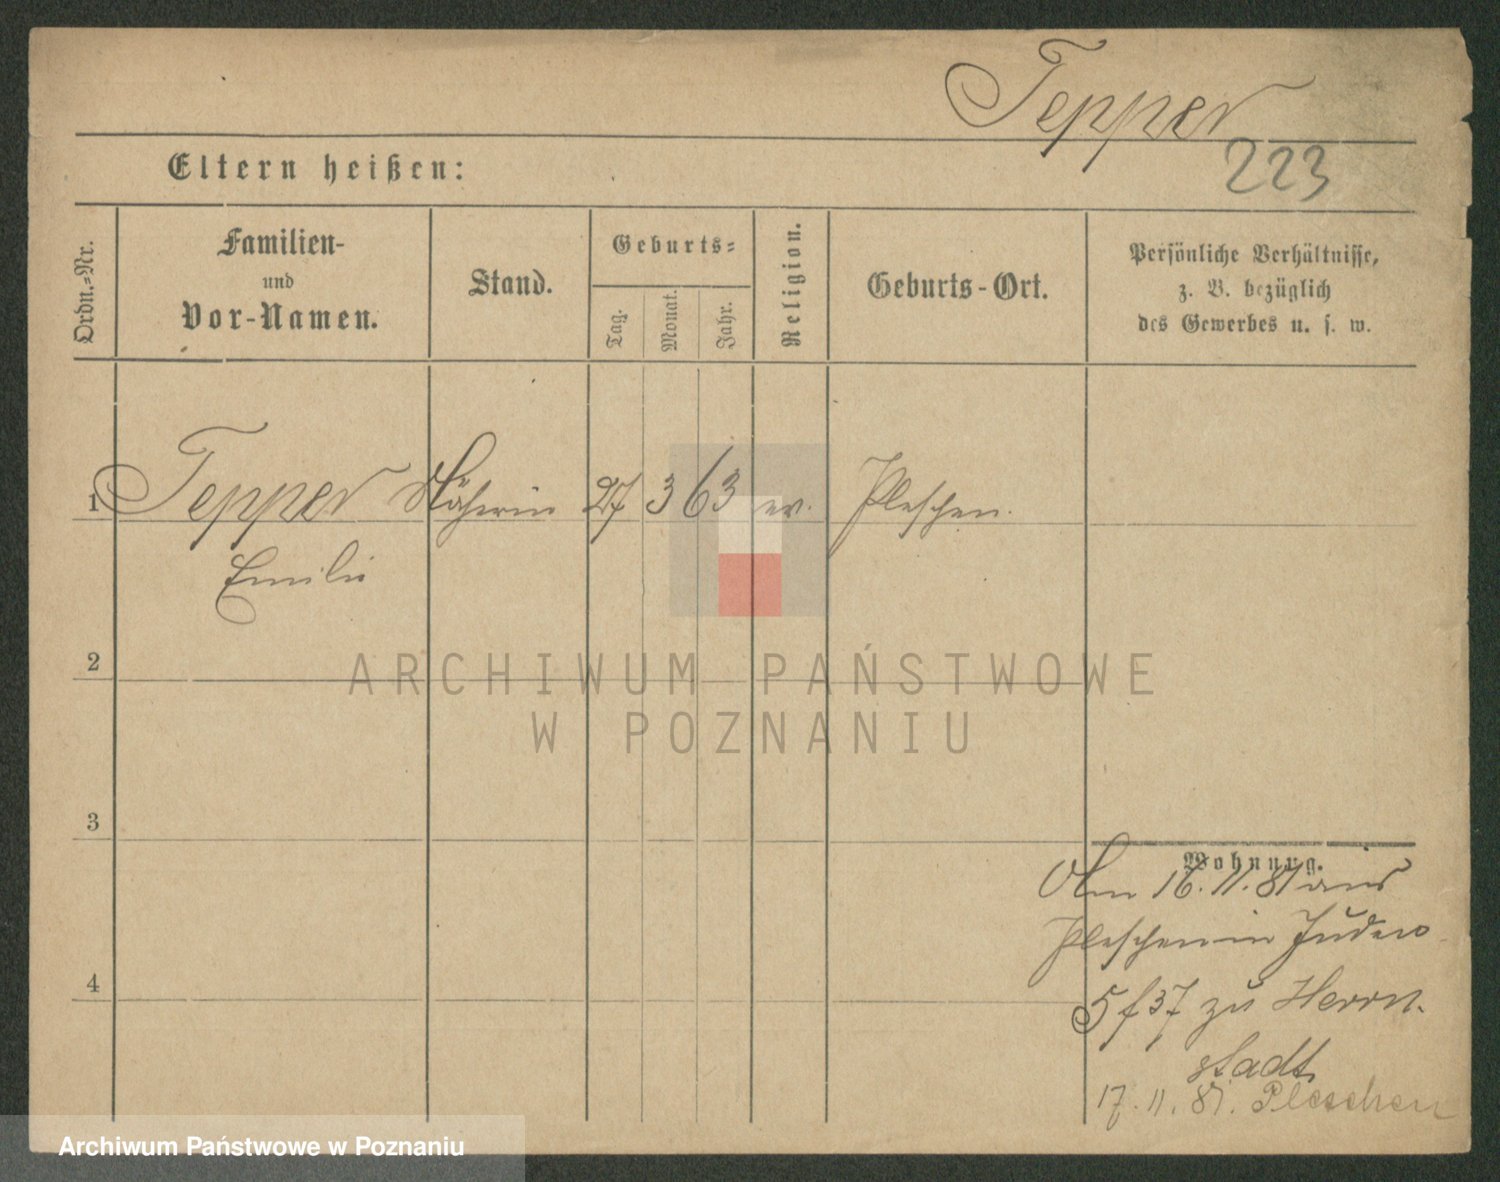 Tepper
223
Eltern heißen:
Ordn.-Nr.
Familien-
und
Vor-Namen.
Stand.
Geburts-
Tag.
Monat.
Jahr.
Religion.
Geburts-Ort.
Persönliche Verhältnisse,
z. B. bezüglich
des Gewerbes u. s. w.
1 Tepper Näherin 27 3 63 ev. Pleschen.
Emilie
2
3
4
Wohnung.
Am 16. 11. 81 aus
Pleschen in Juden
5 f 37 zu Herrn.
stadt
17. 11. 81. Pleschen
ARCHIWUM PAŃSTWOWE
W POZNANIU
Archiwum Państwowe w Poznaniu